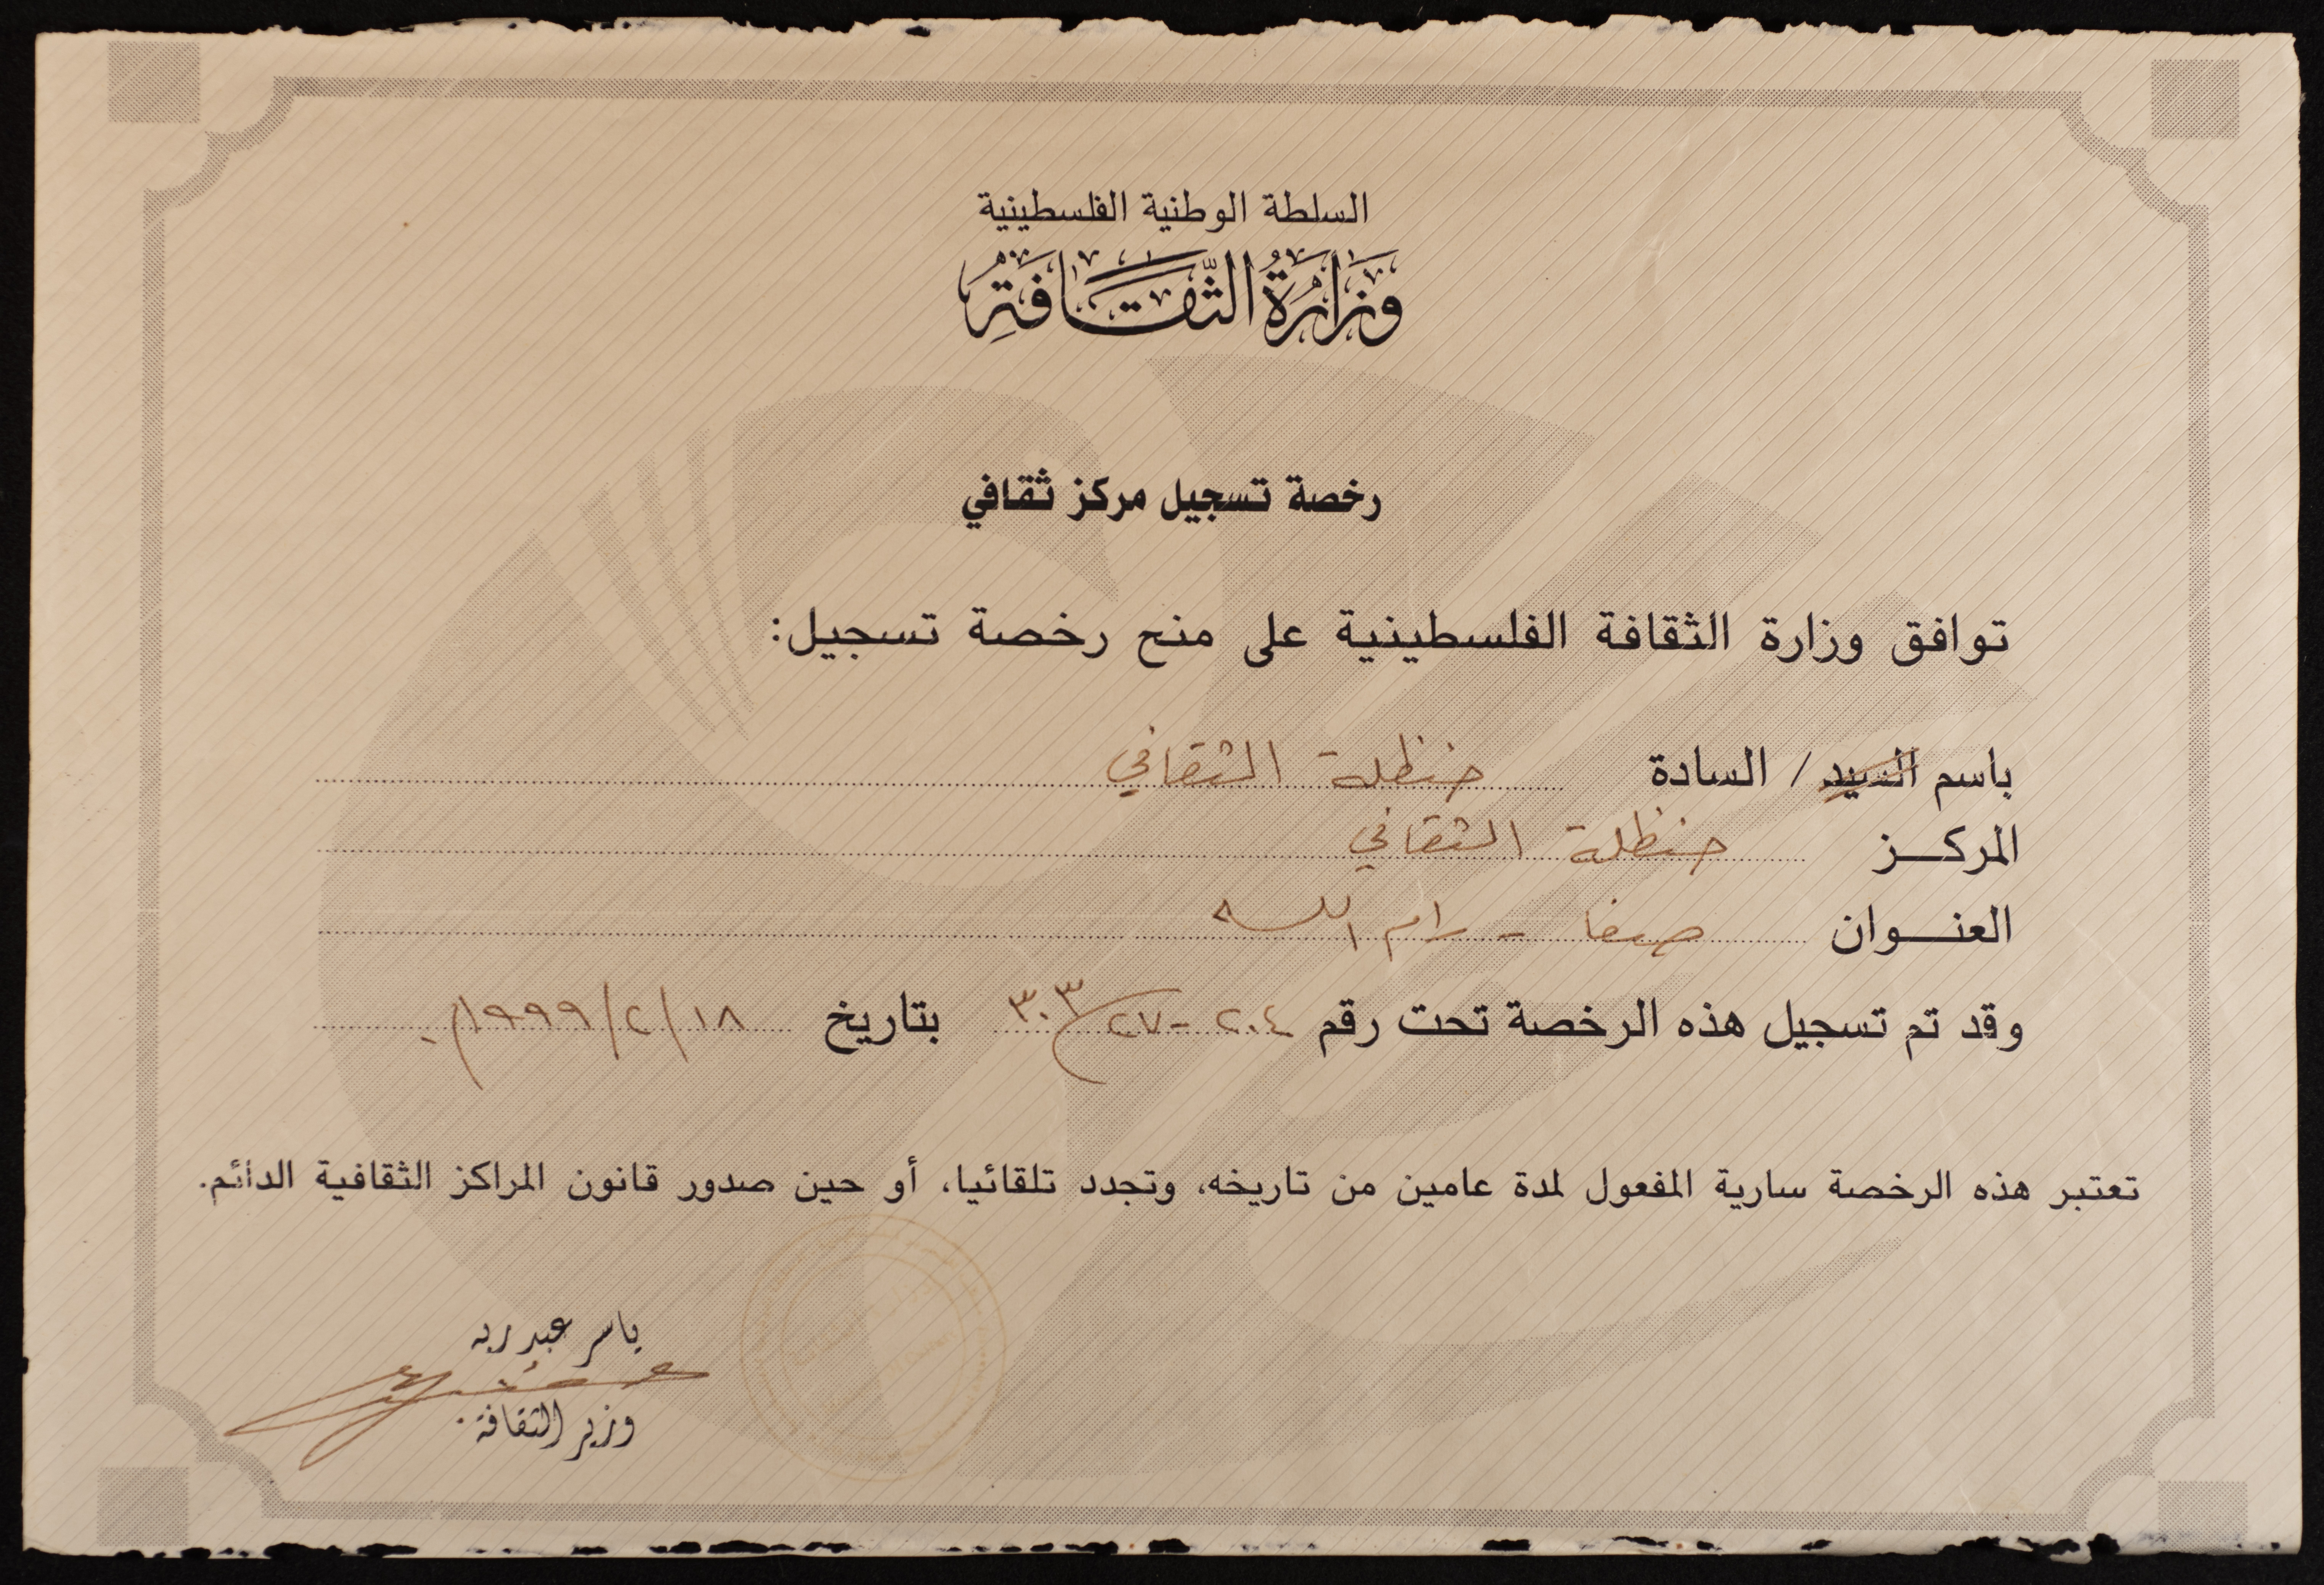 السلطة الوطنية الفلسطينية
وَزَارَةُ الثَّقَافَةِ
رخصة تسجيل مركز ثقافي
توافق وزارة الثقافة الفلسطينية على منح رخصة تسجيل:
باسم السيد / السادة حنظلة الثقافي
المركـــز حنظلة الثقافي
العنــوان صفا - رام الله
وقد تم تسجيل هذه الرخصة تحت رقم ٢٠٤-٢٧/٣٠٣ بتاريخ ١٨/٢/١٩٩٩م.
تعتبر هذه الرخصة سارية المفعول لمدة عامين من تاريخه، وتجدد تلقائيا، أو حين صدور قانون المراكز الثقافية الدائم.
ياسر عبد ربه
وزير الثقافة